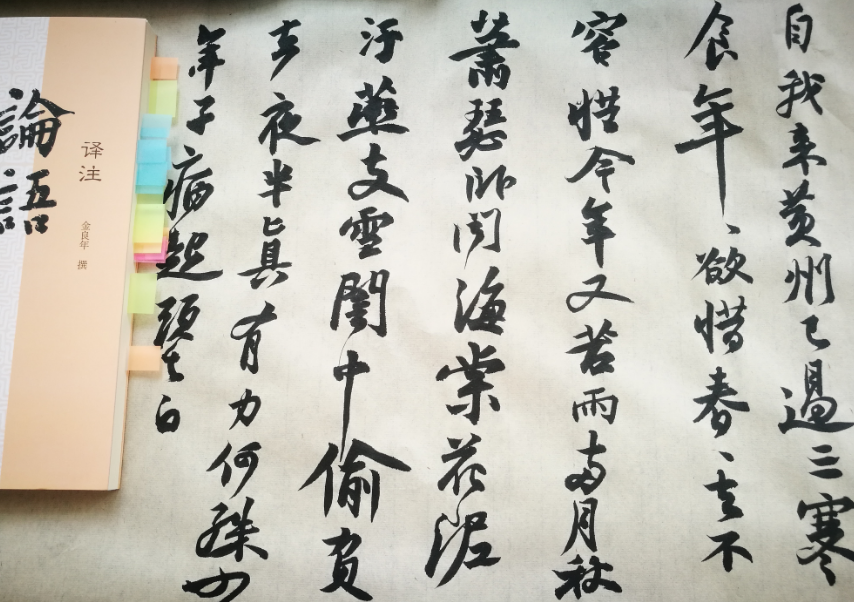 自我来黄州已過三寒
食年、欲惜春、去不
容惜今年又苦雨兩月秋
蕭瑟卧聞海棠花泥
汙燕支雪闇中偷負
去夜半真有力何殊少
年子病起頭已白
論語
译注
金良年 撰